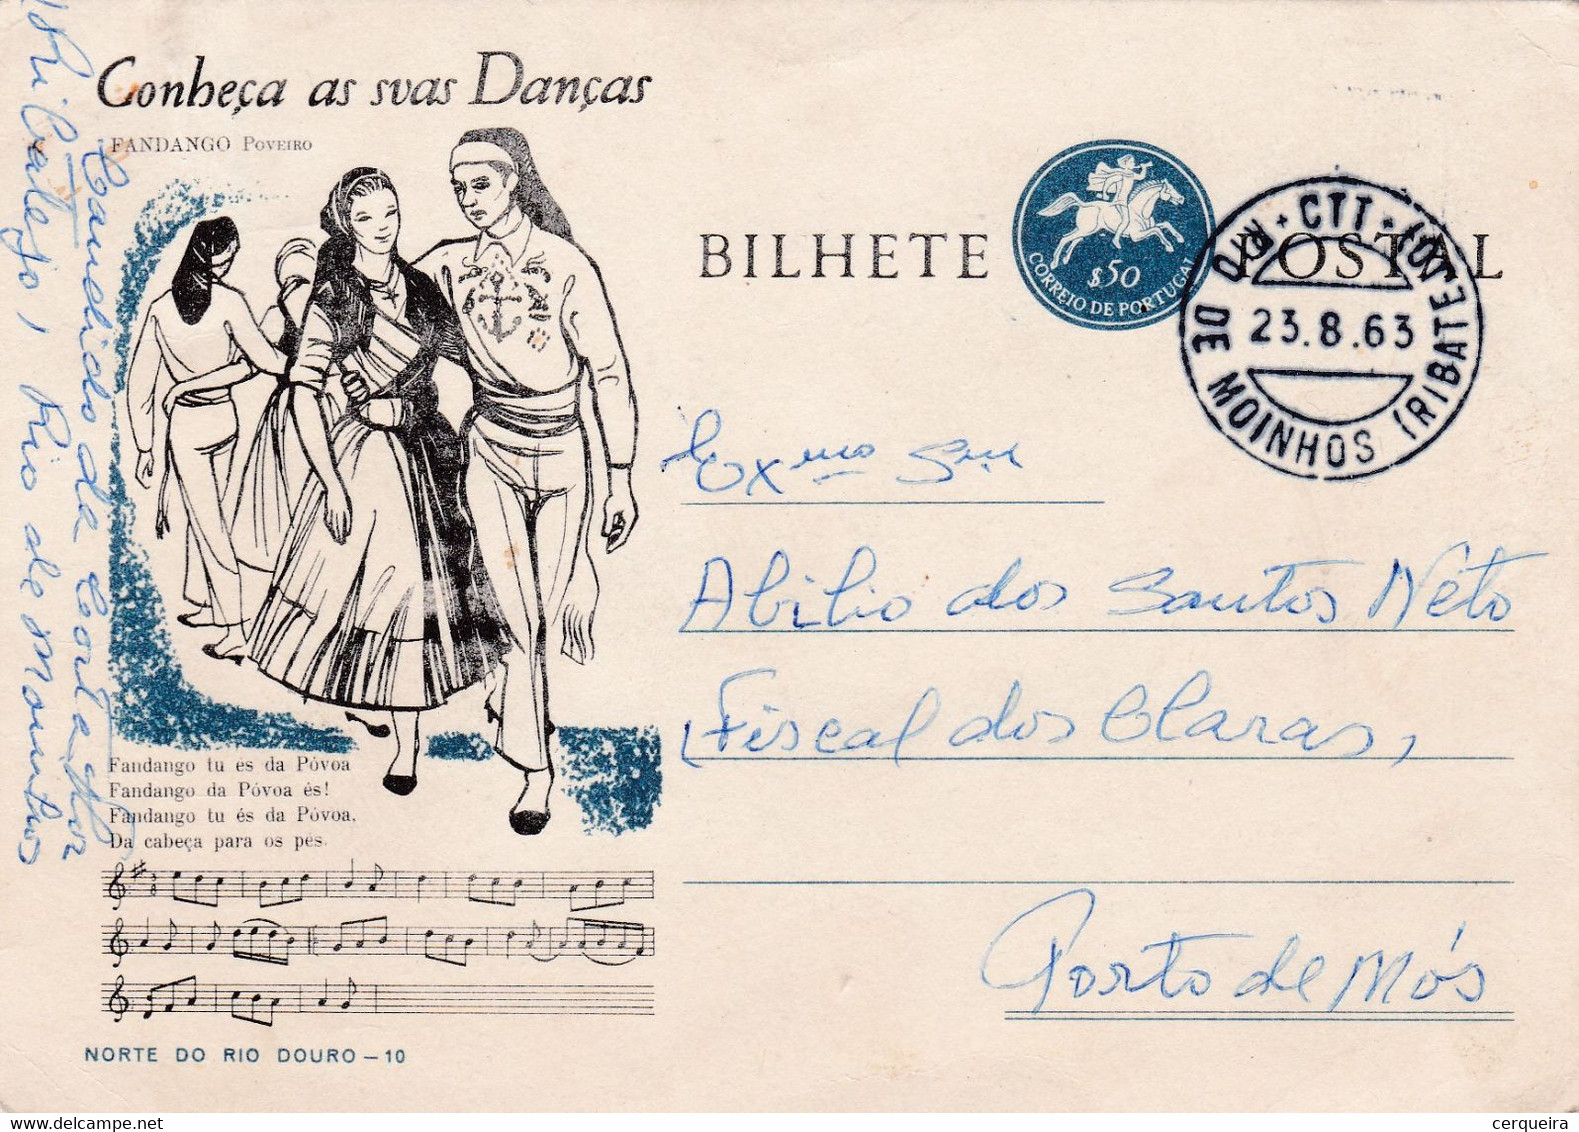 Conheça as suas Danças
FANDANGO POVEIRO
BILHETE POSTAL
$50
CORREIO DE PORTUGAL
CTT
RIO DE MOINHOS (RIBATEJO)
23.8.63
Exmo Snr
Abilio dos Santos Neto
Fiscal dos Claras,
Porto de Mós
Fandango tu es da Póvoa
Fandango da Póvoa és!
Fandango tu és da Póvoa,
Da cabeça para os pés.
NORTE DO RIO DOURO – 10
da Costa
Rio de Moinhos
cerqueira